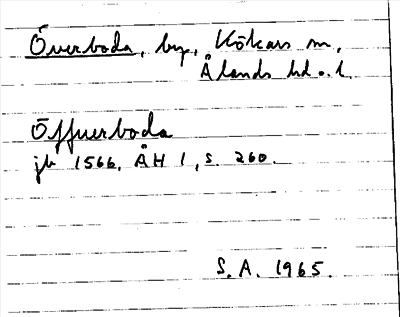 Överboda, by, Kökars sn,
Ålands hd o. l.
Öffuerboda
jb 1566, ÅH 1, s. 260.
S. A. 1965.